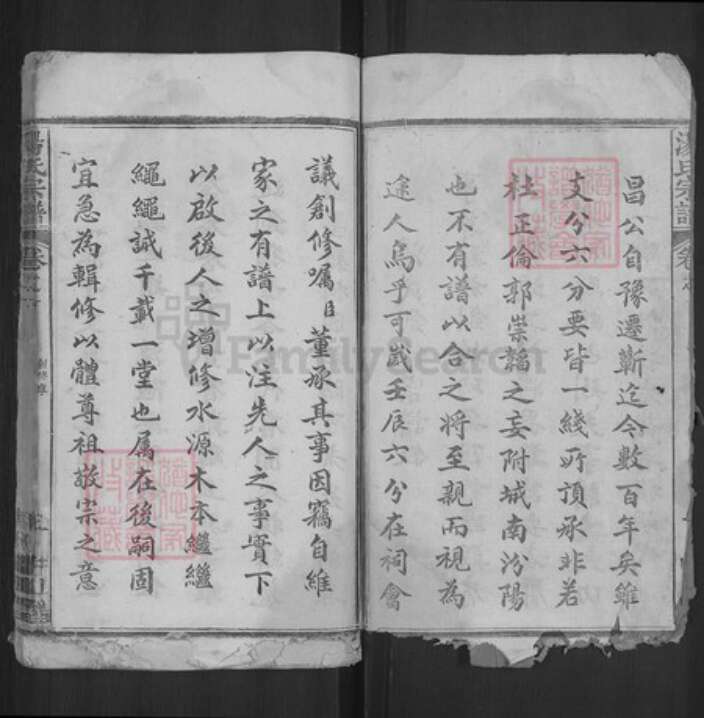 昌公自豫遷蘄迄今數百年矣雖
支分六分要皆一綫所頂承非若
杜正倫郭崇韜之妄附城南汾陽
也不有譜以合之將至親而視為
途人烏乎可歲壬辰六分在祠會
議創修囑㠯董承其事因竊自維
家之有譜上以注先人之事實下
以啟後人之增修水源木本繼繼
繩繩誠千載一堂也属在後嗣固
宜急為輯修以體尊祖敬宗之意
湯氏宗譜
卷
湯氏宗譜
卷
FamilySearch